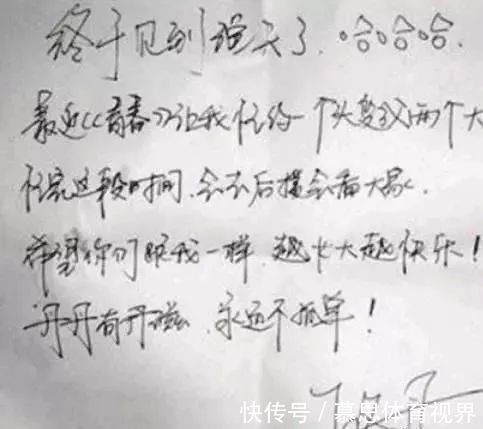 终于见到说天了.哈哈哈.
最近《青春》让我忙的一个头变两个大
忙完这段时间.会去后援会看大家.
希望你们跟我一样.越长大越快乐!
丹丹有丹滋.永远不孤单!
快传号/慕思体育视界